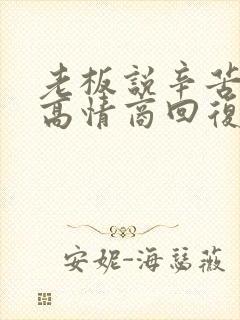 老板說辛苦
高情商回復
安妮-海瑟薇